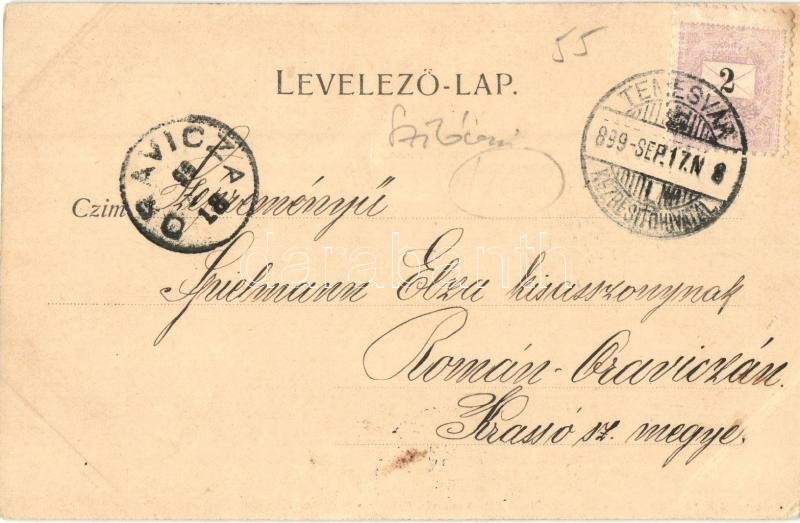 55
LEVELEZŐ-LAP.
2
TEMESVÁR
899-SEP.17.N 8
KÉZBESÍTŐHIVATAL
ORAVICZA
99
18
Czim
Spielmann Elza kisasszonynak
Román-Oraviczán.
Krassó sz. megye.
darabanth